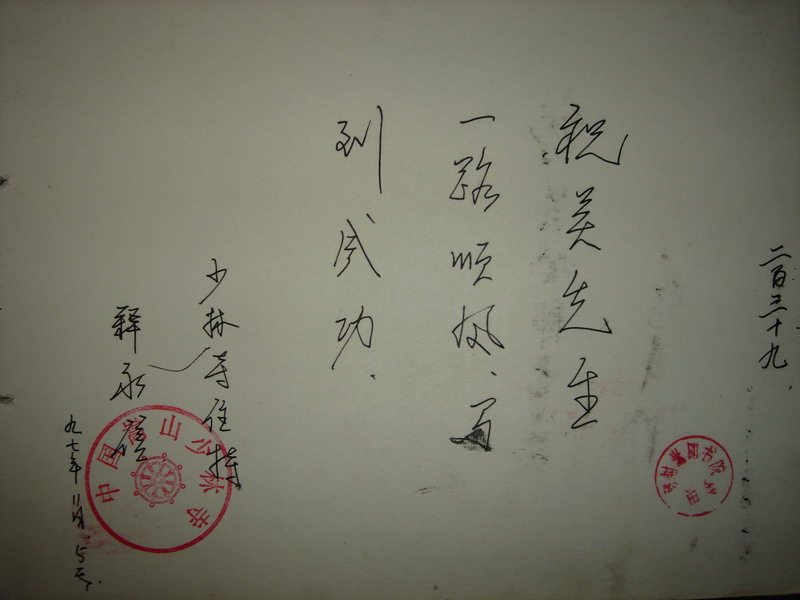 二百三十九
祝先生
一路顺风、马
到成功.
少林寺住持
释永信
九七年11月.5号.
中国嵩山少林寺